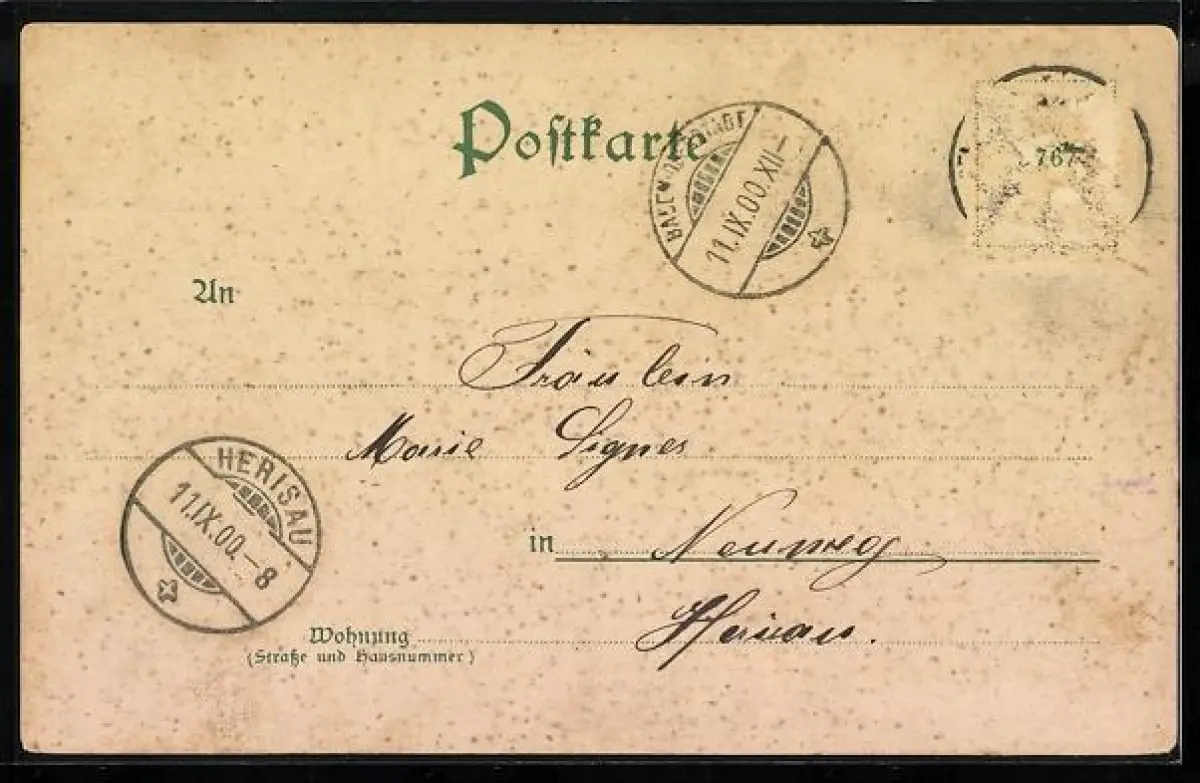 Postkarte
11.IX.00.XII-
767
An
Fräulein
Marie Signer
HERISAU
11.IX.00.-8
in Neuweg
Herisau.
Wohnung
(Straße und Hausnummer)